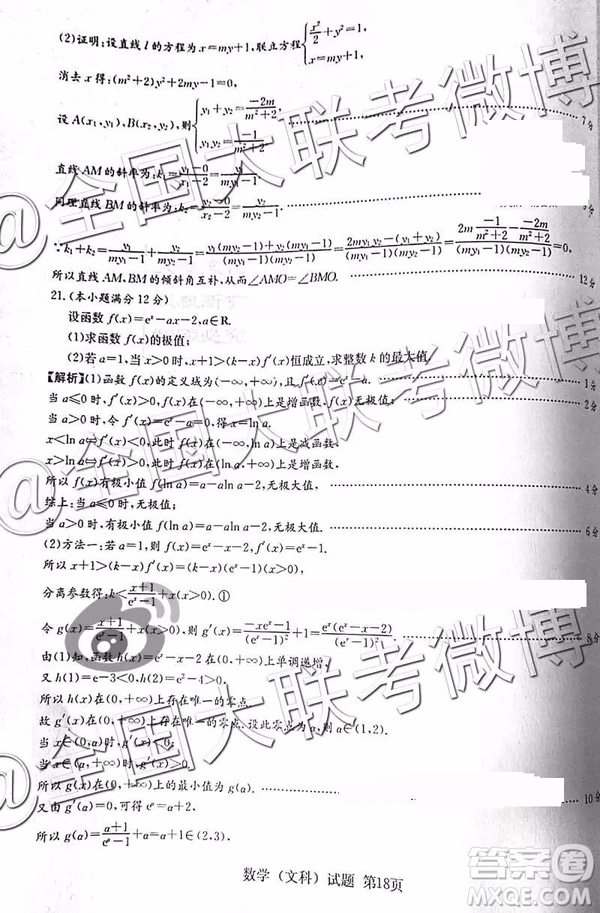 (2)证明:设直线 l 的方程为 x=my+1,联立方程{x²/2+y²=1, x=my+1,
消去 x 得:(m²+2)y²+2my-1=0,
设 A(x₁,y₁),B(x₂,y₂),则{y₁+y₂=-2m/(m²+2) y₁y₂=-1/(m²+2) 7分
直线 AM 的斜率为:k₁=(y₁-0)/(x₁-2)=y₁/(my₁-1)
同理直线 BM 的斜率为:k₂=(y₂-0)/(x₂-2)=y₂/(my₂-1)
∵k₁+k₂=y₁/(my₁-1)+y₂/(my₂-1)
所以直线 AM,BM 的倾斜角互补,从而∠AMO=∠BMO. 12分
21.(本小题满分 12 分)
设函数 f(x)=eˣ-ax-2,a∈R.
(1)求函数 f(x)的极值;
(2)若 a=1,且当 x>0 时,x+1>(k-x)f′(x)恒成立,求整数 k 的最大值
【解析】(1)函数 f(x)的定义线为(-∞,+∞),且 f′(x)=eˣ-a. 1分
当 a⩽0 时,f′(x)>0,所以 f(x)在(-∞,+∞)上是增函数,f(x)无极值; 2分
当 a>0 时,令 f′(x)=eˣ-a=0,得 x=ln a.
x<ln a⇔f′(x)<0,此时 f(x)在(-∞,ln a)上是减函数,
x>ln a⇔f′(x)>0,此时 f(x)在(ln a,+∞)上是增函数.
所以 f(x)有极小值 f(ln a)=a-aln a-2,无极大值. 4分
综上:当 a⩽0 时,无极值,
当 a>0 时,有极小值 f(ln a)=a-aln a-2,无极大值. 6分
(2)方法一:当 a=1 时,则 f(x)=eˣ-x-2,f′(x)=eˣ-1,
所以 x+1>(k-x)f′(x)=(k-x)(eˣ-1)(x>0),
分离参数得:k<(x+1)/(eˣ-1)+x(x>0).①
令 g(x)=(x+1)/(eˣ-1)+x(x>0),则 g′(x)=(-xeˣ-1)/(eˣ-1)²+1=eˣ(eˣ-x-2)/(eˣ-1)² 8分
由(1)知,函数 h(x)=eˣ-x-2 在(0,+∞)上单调递增,
又 h(1)=e-3<0,h(2)=e²-4>0,
所以 h(x)在(0,+∞)上存在唯一的零点
故 g′(x)在(0,+∞)上存在唯一的零点.设此零点为 a,则 a∈(1,2).
当 x∈(0,a)时,g′(x)<0;
当 x∈(a,+∞)时,g′(x)>0.
所以 g(x)在(0,+∞)上的最小值为 g(a). 10分
又由 g′(a)=0,可得 eᵃ=a+2,
所以 g(a)=(a+1)/(eᵃ-1)+a=a+1∈(2,3).
数学(文科)试题 第18页
@全国大联考微博
@全国大联考微博
@全国大联考微博
答案圈
MXQE.COM